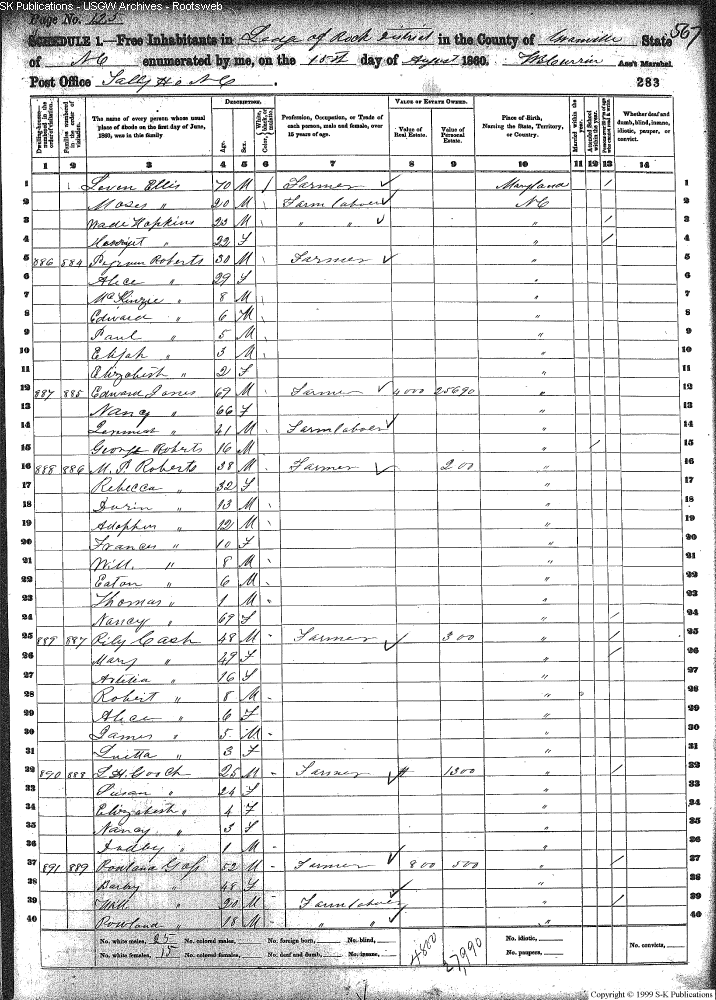 SK Publications - USGW Archives - Rootsweb
Page No. 123
SCHEDULE 1.—Free Inhabitants in Ledge of Rock District in the County of Granville State 567
of NC enumerated by me, on the 15th day of August 1860. Ass't Marshal.
Post Office Sally H o N C 283
Dwelling-houses—numbered in the order of visitation.
Families numbered in the order of visitation.
The name of every person whose usual place of abode on the first day of June, 1860, was in this family
DESCRIPTION.
Age.
Sex.
Color, White, black, or mulatto.
Profession, Occupation, or Trade of each person, male and female, over 15 years of age.
VALUE OF ESTATE OWNED.
Value of Real Estate.
Value of Personal Estate.
Place of Birth, Naming the State, Territory, or Country.
Married within the year.
Attended School within the year.
Whether deaf and dumb, blind, insane, idiotic, pauper, or convict.
1 2 3 4 5 6 7 8 9 10 11 12 13 14
1 Leven Ellis 70 M Farmer Maryland / 1
2 Moses " 20 M Farm laborer NC 2
3 Wade Hopkins 23 M " " " / 3
4 Harriet " 22 F " / 4
5 886 884 Roberts 30 M Farmer " 5
6 Alice " 29 F " 6
7 McKinzie " 8 M " 7
8 Edward " 6 M " 8
9 Paul " 5 M " 9
10 Elijah " 3 M " 10
11 Elizabeth " 2 F " 11
12 887 885 Edward Jones 69 M Farmer 4000 25690 " 12
13 Nancy " 66 F " 13
14 " 41 M Farm laborer " 14
15 George Roberts 16 M " / 15
16 888 886 M. P. Roberts 38 M Farmer 200 " 16
17 Rebecca " 32 F " 17
18 " 13 M " 18
19 Adophus " 12 M " 19
20 Frances " 10 F " 20
21 Will. " 8 M " 21
22 Eaton " 6 M " 22
23 Thomas " 1 M " 23
24 Nancy " 69 F " / 24
25 889 887 Rily Cash 48 M Farmer 300 " / 25
26 Mary " 49 F " / 26
27 Artelia " 16 F " 27
28 Robert " 8 M " 28
29 Alice " 6 F " 29
30 James " 5 M " 30
31 Luetta " 3 F " 31
32 890 888 L H Gooch 25 M Farmer 1300 " / 32
33 Susan " 24 F " 33
34 Elizabeth " 4 F " 34
35 Nancy " 3 F " 35
36 " 1 M " 36
37 891 889 Rowland Goss 52 M Farmer 800 500 " / 37
38 Darby " 48 F " 38
39 Will. " 20 M Farm laborer " / 39
40 Rowland " 18 M " " " 40
No. white males, 25 No. colored males, No. foreign born, No. blind, No. idiotic, No. convicts,
No. white females, 15 No. colored females, No. deaf and dumb, No. insane, 4800 27,990 No. paupers,
Copyright © 1999 S-K Publications